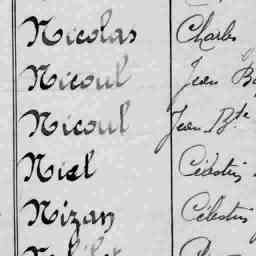 Nicolas Charles
Nicoul Jean B
Nicoul Jean Bte
Niel Célestin
Nizan Célestin